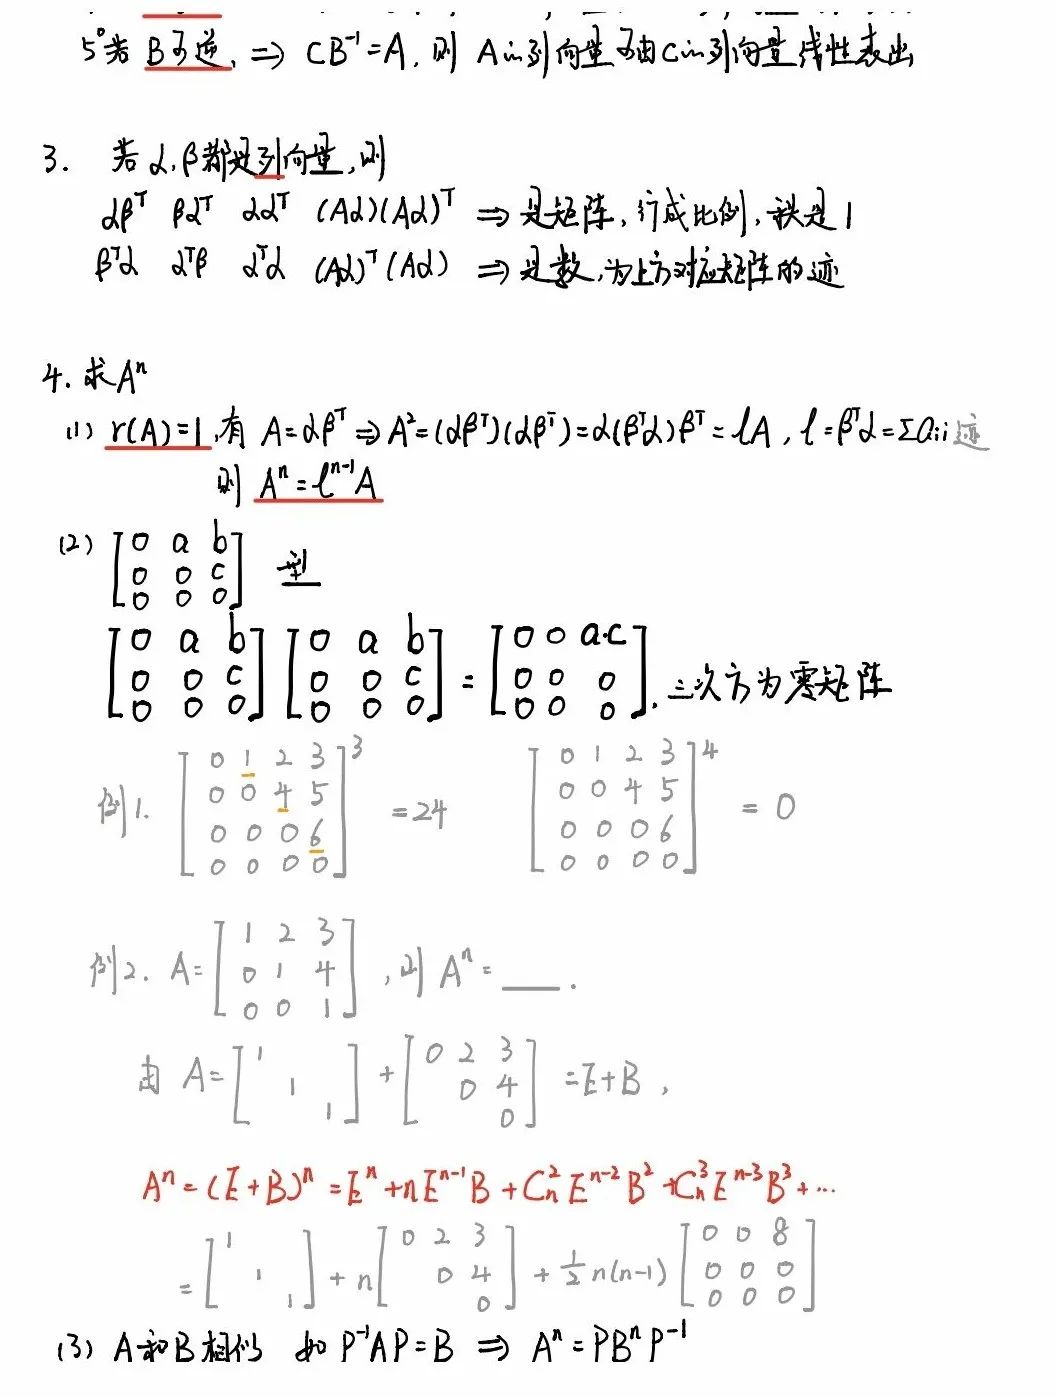 5° 若 B可逆, ⇒ CB⁻¹=A, 则 A的列向量可由C的列向量线性表出
3. 若 α,β都是列向量,则
αβᵀ βαᵀ ααᵀ (Aα)(Aα)ᵀ ⇒ 是矩阵, 行成比例, 秩是1
βᵀα αᵀβ αᵀα (Aα)ᵀ(Aα) ⇒ 是数,为上方对应矩阵的迹
4. 求Aⁿ
(1) r(A)=1,有 A=αβᵀ ⇒ A²=(αβᵀ)(αβᵀ)=α(βᵀα)βᵀ=lA, l=βᵀα=Σaii 迹
则 Aⁿ=lⁿ⁻¹A
(2) [0 a b
0 0 c
0 0 0] 型
[0 a b
0 0 c
0 0 0] [0 a b
0 0 c
0 0 0] = [0 0 a·c
0 0 0
0 0 0]. 三次方为零矩阵
例1. [0 1 2 3
0 0 4 5
0 0 0 6
0 0 0 0]³ =24 [0 1 2 3
0 0 4 5
0 0 0 6
0 0 0 0]⁴ = 0
例2. A= [1 2 3
0 1 4
0 0 1] ,则 Aⁿ= ___ .
由 A= [1
1
1] + [0 2 3
0 4
0] =E+B ,
Aⁿ=(E+B)ⁿ=Eⁿ+nEⁿ⁻¹B+Cₙ²Eⁿ⁻²B²+Cₙ³Eⁿ⁻³B³+···
= [1
1
1] + n [0 2 3
0 4
0] + ½n(n-1) [0 0 8
0 0 0
0 0 0]
(3) A和B相似 如 P⁻¹AP=B ⇒ Aⁿ=PBⁿP⁻¹